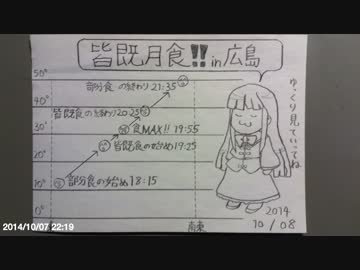 皆既月食!! in 広島
50°
40°
30°
20°
10°
0°
部分食の終わり 21:35
皆既食の終わり 20:25
食MAX!! 19:55
皆既食の始め 19:25
部分食の始め 18:15
南東
ゆっくり見ていってね
2014
10/08
2014/10/07 22:19